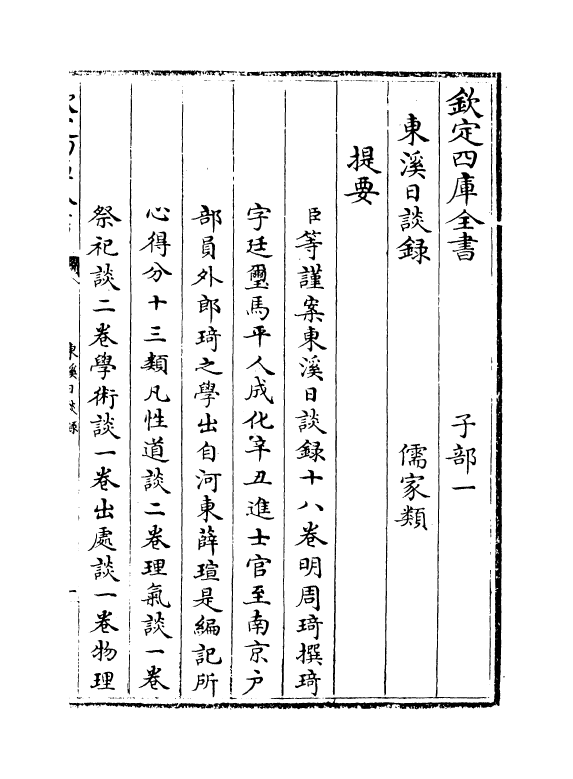 欽定四庫全書 子部一
東溪日談録 儒家類
提要
臣等謹案東溪日談録十八卷明周琦撰琦
字廷璽馬平人成化辛丑進士官至南京户
部員外郎琦之學出自河東薛瑄是編記所
心得分十三類凡性道談二卷理氣談一卷
祭祀談二卷學術談一卷出處談一卷物理
東溪日談録
一